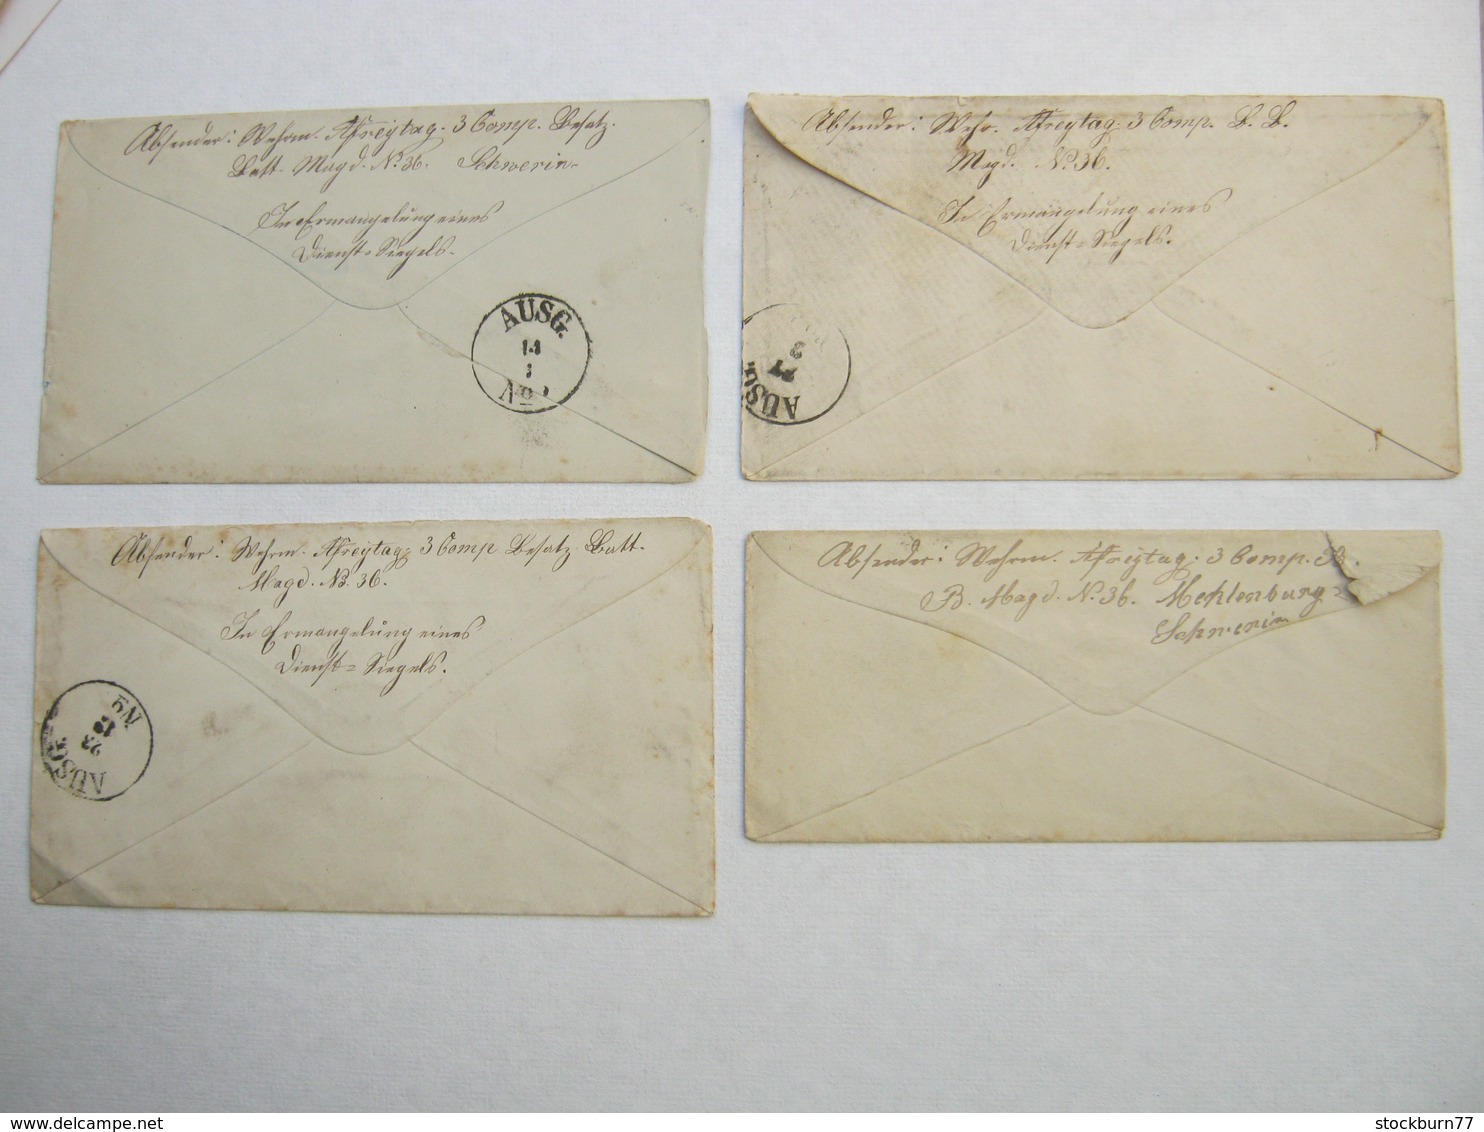 Absender: Wehrm. Freytag. 3 Comp. Besatz.
Batt. Magd. No. 36. Schwerin.
In Ermangelung eines
Dienst=Siegels.
AUSG.
1
No
Absender: Wehr. Freytag. 3 Comp. B. B.
Magd. No. 36.
In Ermangelung eines
Dienst=Siegels.
3
27
AUSG.
Absender: Wehrm. Freytag. 3 Comp Besatz Batt.
Magd. No. 36.
In Ermangelung eines
Dienst=Siegels.
No
12
23
AUSG.
Absender: Wehrm. Freytag. 3 Comp. B.
B. Magd. No. 36. Mecklenburg=
Schwerin
stockburn77